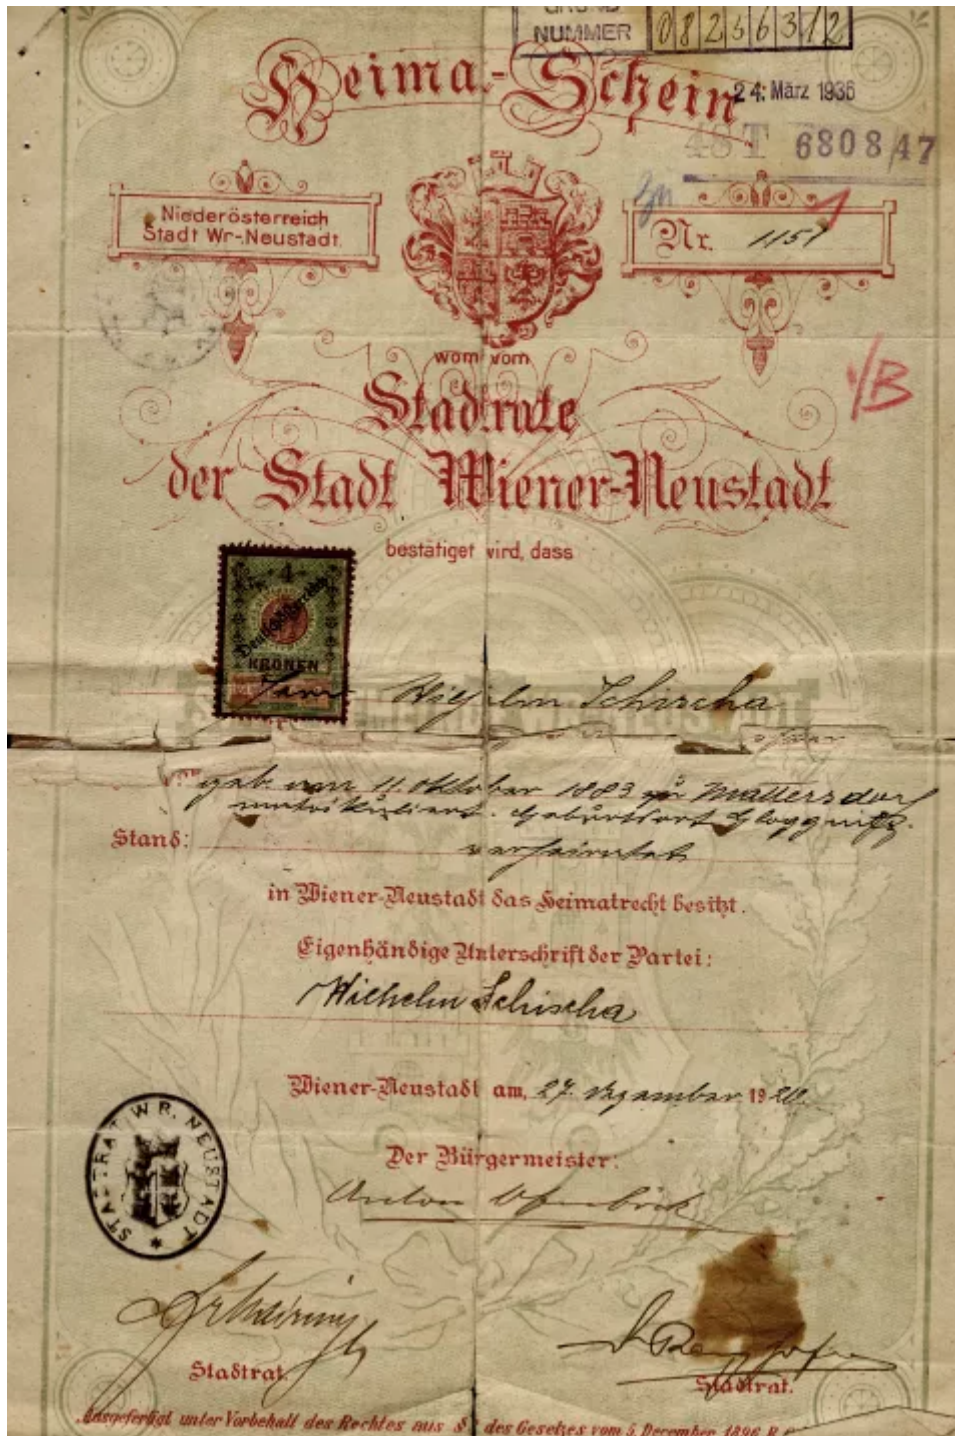 GRUND
NUMMER 08256312
Heima-Schein
24. März 1936
48 T 6808/47
Zu
Niederösterreich
Stadt Wr.-Neustadt.
Nr. 1151
1/B
wom vom
Stadtrate
der Stadt Wiener-Neustadt
bestätiget wird, dass
4
Deutschösterreich
KRONEN
Herr Wilhelm Schischa
geb. am 11. Oktober 1883 zu Mattersdorf
matrikuliert. Geburtsort Gloggnitz.
Stand: verheiratet
in Wiener-Neustadt das Heimatrecht besitzt.
Eigenhändige Unterschrift der Partei:
Wilhelm Schischa
Wiener-Neustadt am, 27. Dezember 1920.
Der Bürgermeister:
Anton Ofenböck
STADTRAT WR. NEUSTADT
Stadtrat.
Stadtrat.
Ausgefertigt unter Vorbehalt des Rechtes aus § des Gesetzes vom 5. December 1896 R.